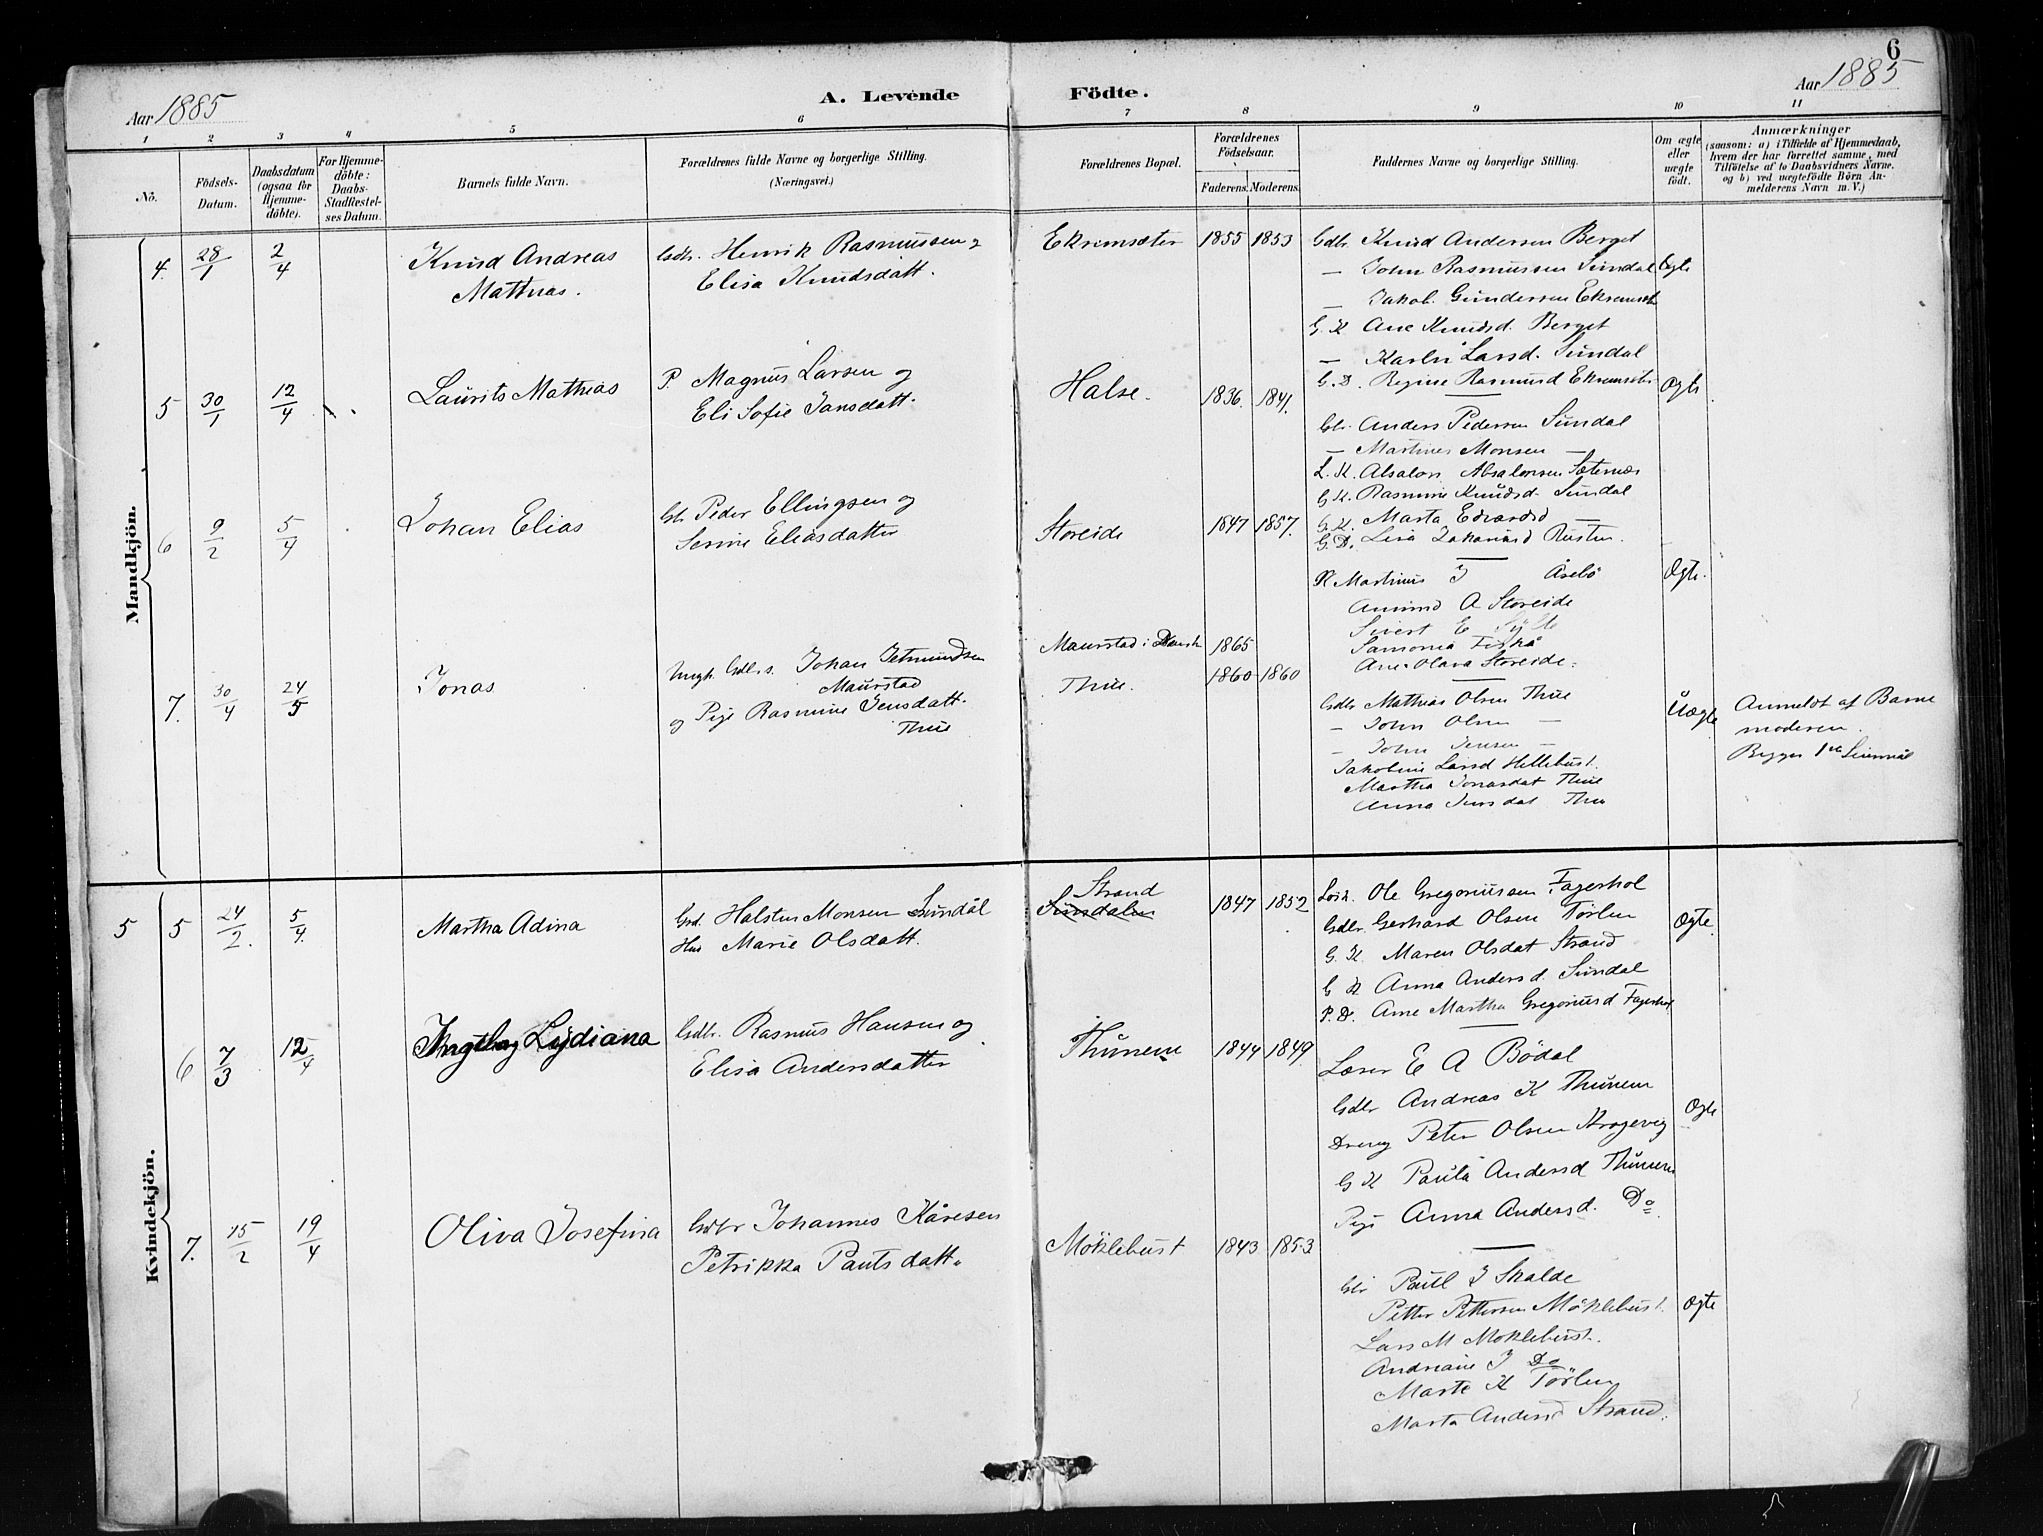 6
Aar 1885
A. Levende Födte.
Aar 1885
1 2 3 4 5 6 7 8 9 10 11
No.
Födsels-Datum.
Daabsdatum (ogsaa for Hjemme-döbte).
For Hjemme-döbte: Daabs-Stadfæstel-ses Datum.
Barnets fulde Navn.
Forældrenes fulde Navne og borgerlige Stilling. (Næringsvei.)
Forældrenes Bopæl.
Forældrenes Födselsaar.
Faderens. Moderens.
Faddernes Navne og borgerlige Stilling.
Om ægte eller uægte födt.
Anmærkninger
(saasom: a) i Tilfælde af Hjemmedaab,
hvem der har forrettet samme, med
Tilföielse af to Daabsvidners Navne.
og b) ved uægtefödte Börn An-
melderens Navn m. V.)
Mandkjön.
4. 28/1 2/4 Knud Andreas
Mathias.
Gdbr. Henrik Rasmussen &
Elisa Knudsdatt.
Ekremsæter 1855 1853
Gdbr. Knud Andersen Berget
— John Rasmussen Sundal Ægte
— Jakob Gundersen Ekremsæt
G. K Ane Knudsd. Berget
— Larsd. Sundal
G. D. Regine Rasmusd Ekremsetr.
5 30/1 12/4 Laurits Mathias
P. Magnus Larsen og
Eli Sofie Jansdatt.
Halse. 1836. 1841. Ægte
Gbr. Anders Pedersen Sundal
— Martines Monsen —
L. K. Absalon Absalonsen Sæternes
G K. Rasmine Knudsd. Sundal
G. K. Marta Edvardsd —
G. D. Lina Rusten.
6 9/2 5/4 Johan Elias
Gbr Peder Ellingsen og
Serine Eliasdatter
Storeide 1847 1857. Ægte.
K Martinus J Åsebö
Amund A Storeide
Sivert E
Samona
Ane Olava Storeide.
7. 30/4 24/5 Jonas
Ungk. Gdbrs. Johan Jetmundsen
Maurstad
og Pige Rasmine Jensdatt.
Thue
Maurstad i 1865
Thue. 1860 1860
Gdbr Mathias Olsen Thue Uægte
— John Olsen —
— John Jensen —
Jakobine Larsd Hellebust.
Martha Jonasdat Thue
Anna Jensdat Thue
Anmeldt af Barne
moderen.
Begges 1ste Leiermål
Kvindekjön.
5 5 24/2. 5/4. Martha Adina
Grd. Halsten Monsen Sundal
Hus Marie Olsdatt.
Strand
Sundalen
1847 1852 Ægte.
Ole Gregoriussen Fagerhol
Gdbr Gerhard Olsen Törlen
G. K. Maren Olsdat Strand
G K Anna Andersd. Sundal
P. D. Ane Martha Gregoriusd Fagerhol
6 7/3 12/4 Lydiana
Gdbr. Rasmus Hansen og
Elisa Andersdatter
Thunem 1844 1849. Ægte
Læser E A Bödal
Gdbr Andreas K Thunem
Dreng Peter Olsen Krogevig
G K Paula Andersd Thunem
Pige Anna Andersd. Do
7. 15/2 19/4 Oliva Josefina
Gdbr Johannes Kåresen
Petrikka Paulsdatt.
Möklebust 1843 1853 Ægte
Gbr Paul J Skalde
Petter Pettersen Möklebust.
Lars M Möklebust.
Andriane J Do
Marte K Törlen
Marta Andersd Strand.